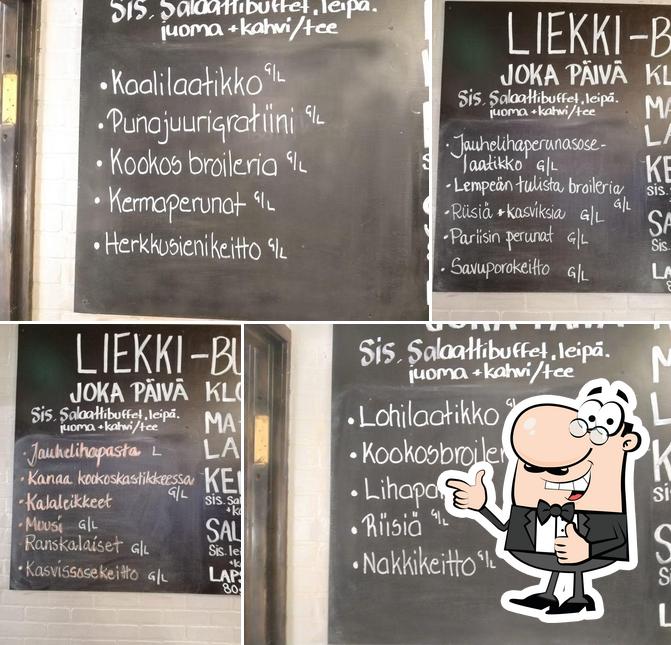 Sis. Salaattibuffet, leipä.
juoma + kahvi/tee
• Kaalilaatikko G/L
• Punajuurigratiini G/L
• Kookos broileria G/L
• Kermaperunat G/L
• Herkkusienikeitto G/L
LIEKKI-B
JOKA PÄIVÄ
Sis. Salaattibuffet, leipä.
juoma + kahvi/tee
• Jauhelihaperunasose-
laatikko G/L
• Lempeän tulista broileria G/L
• Riisiä + kasviksia G/L
• Pariisin perunat G/L
• Savuporokeitto G/L
KL
MA
LA
KE
sis.
SA
Sis.
LA
LIEKKI-BU
JOKA PÄIVÄ
Sis. Salaattibuffet, leipä.
juoma + kahvi/tee
• Jauhelihapasta L
• Kanaa kookoskastikkeessa G/L
• Kalaleikkeet
• Muusi G/L
Ranskalaiset G/L
• Kasvissosekeitto G/L
KLO
MA-
LA
KE
sis. sa
SAL
Sis. lei
LAPS
Sis. Salaattibuffet, leipä.
juoma + kahvi/tee
• Lohilaatikko
• Kookosbroiler
• Lihapu
• Riisiä G/L
• Nakkikeitto G/L